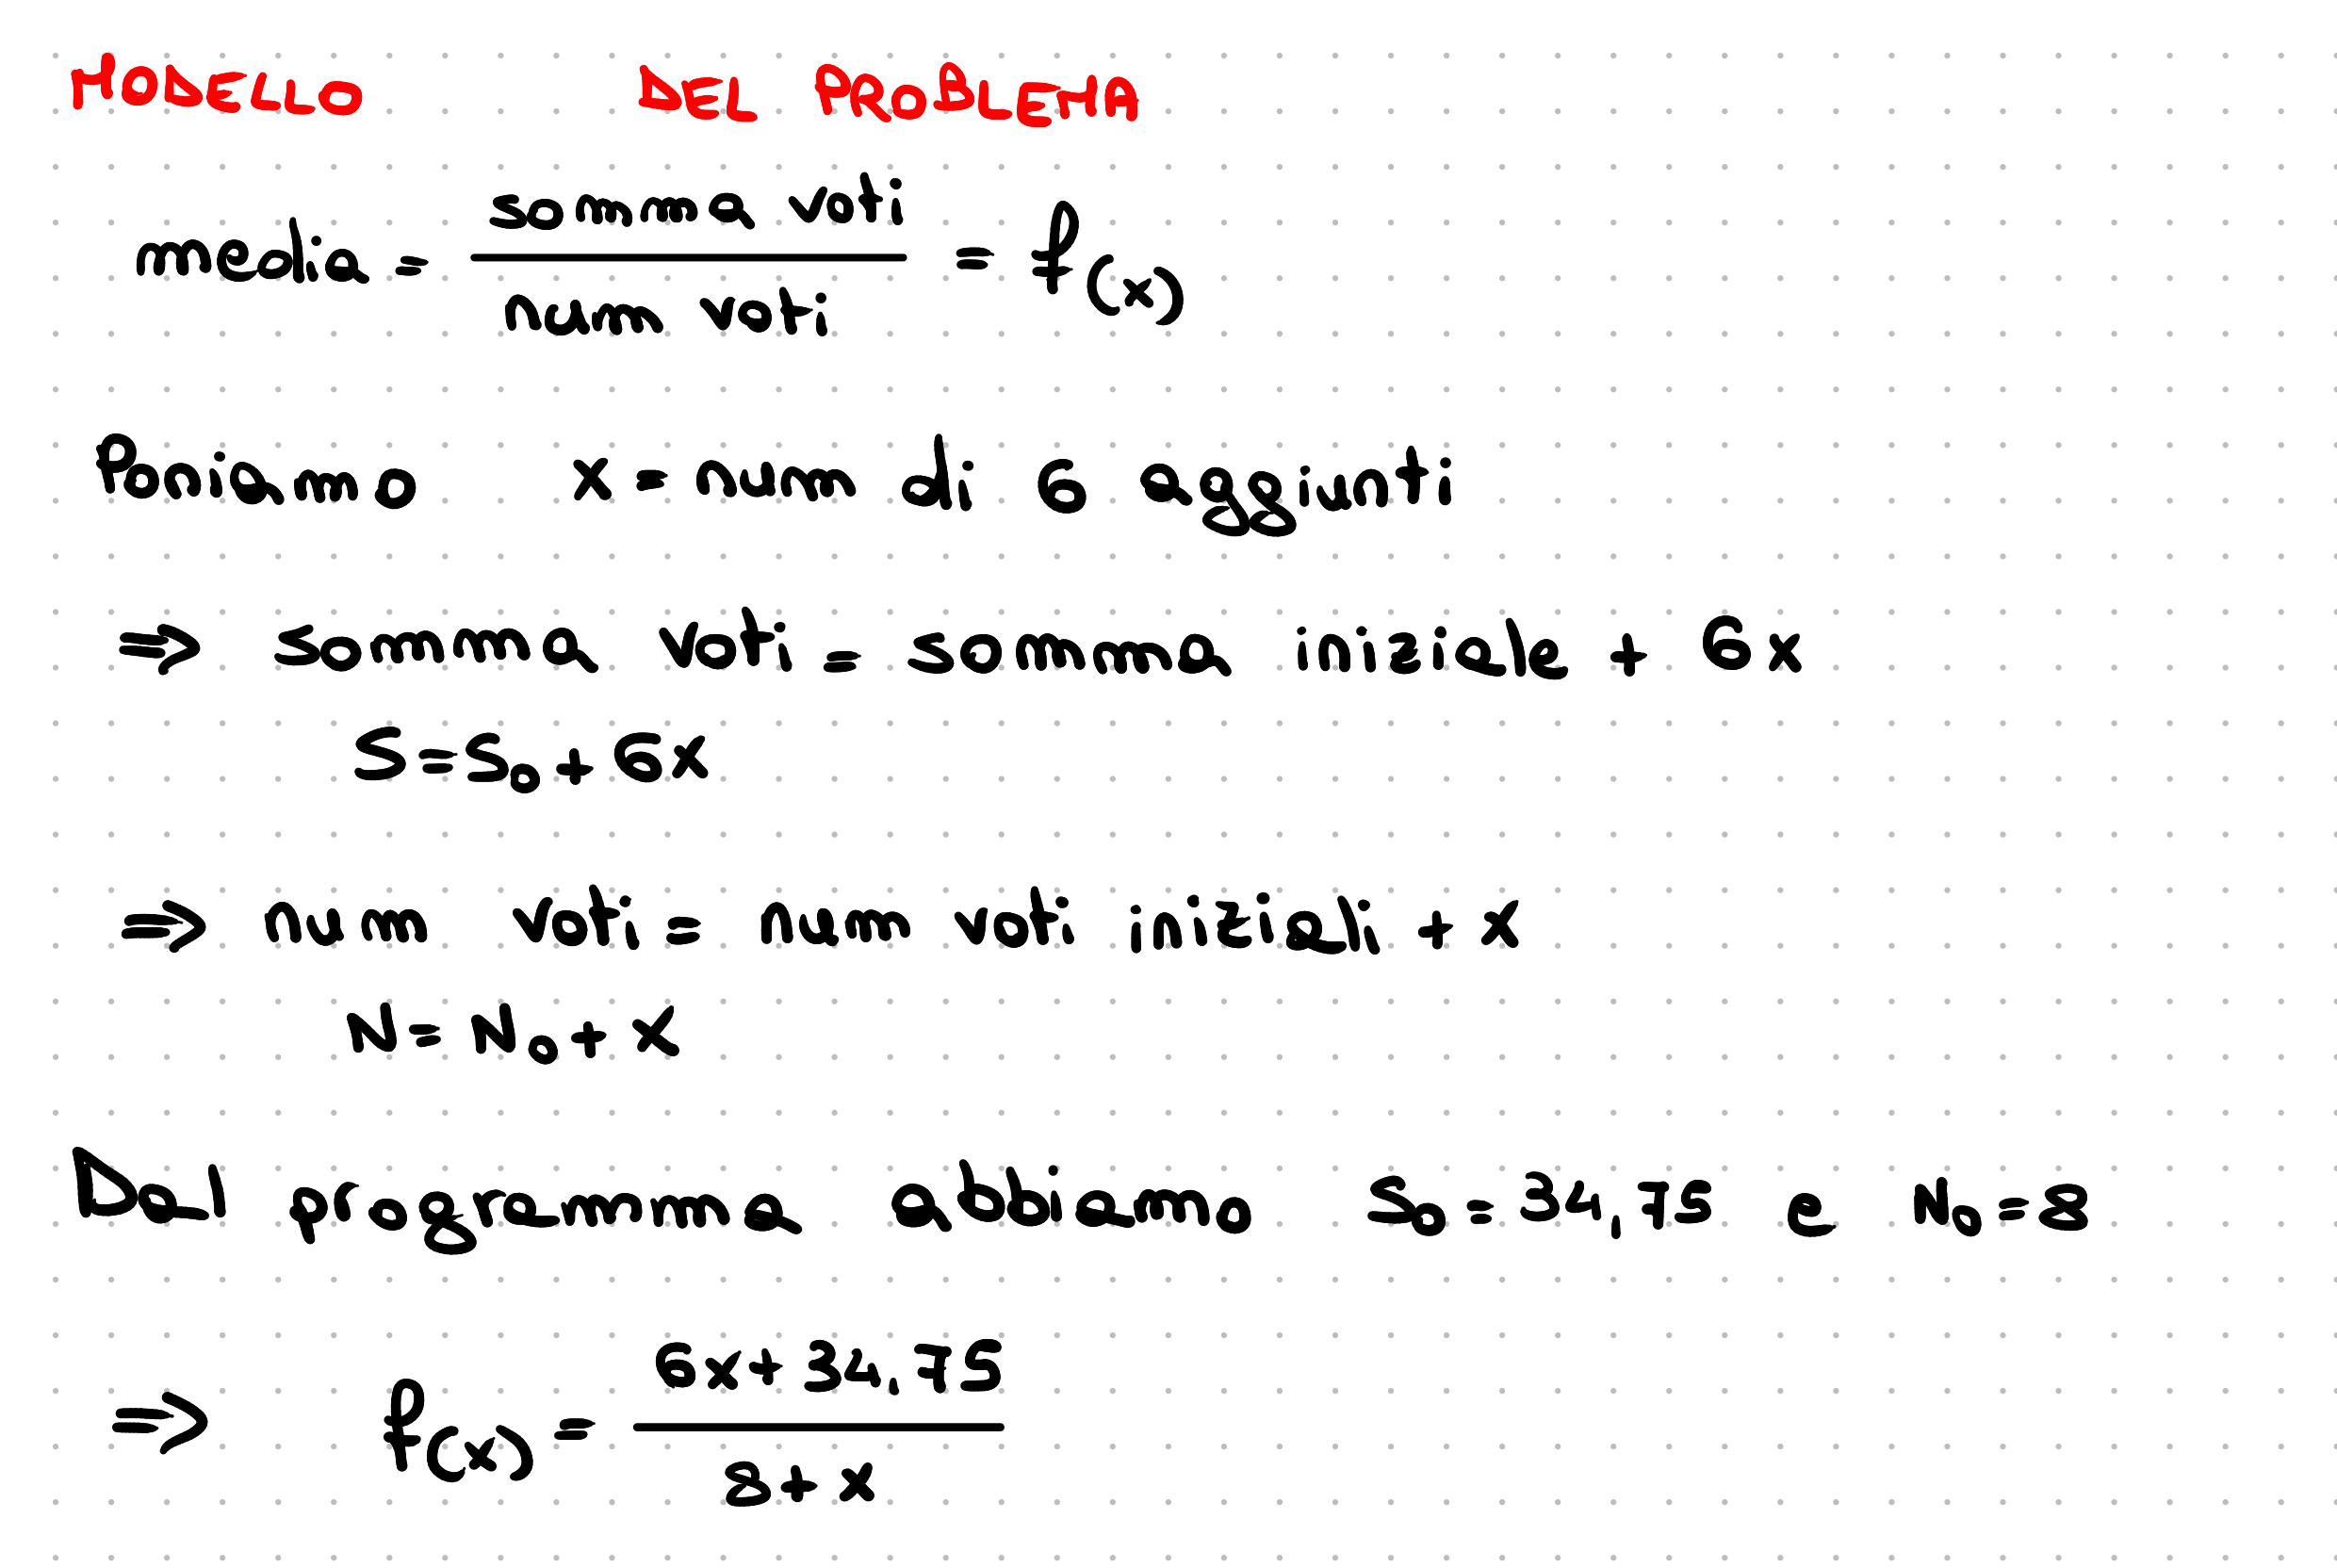 MODELLO DEL PROBLEMA
media = somma voti / num voti = f(x)
Poniamo x = num di 6 aggiunti
⇒ somma voti = somma iniziale + 6x
S = S₀ + 6x
⇒ num voti = num voti iniziali + x
N = N₀ + x
Dal programma abbiamo S₀ = 34,75 e N₀ = 8
⇒ f(x) = 6x + 34,75 / 8 + x